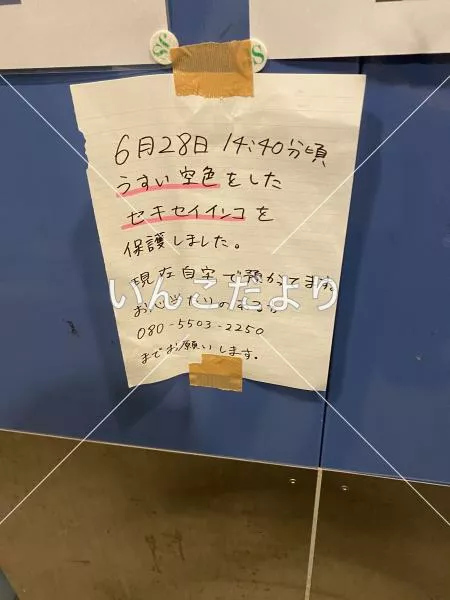 6月28日 14:40分頃
うすい空色をした
セキセイインコを
保護しました。
現在自宅で預かってます。
お心当たりのある方
080-5503-2250
までお願いします。
いんこだより